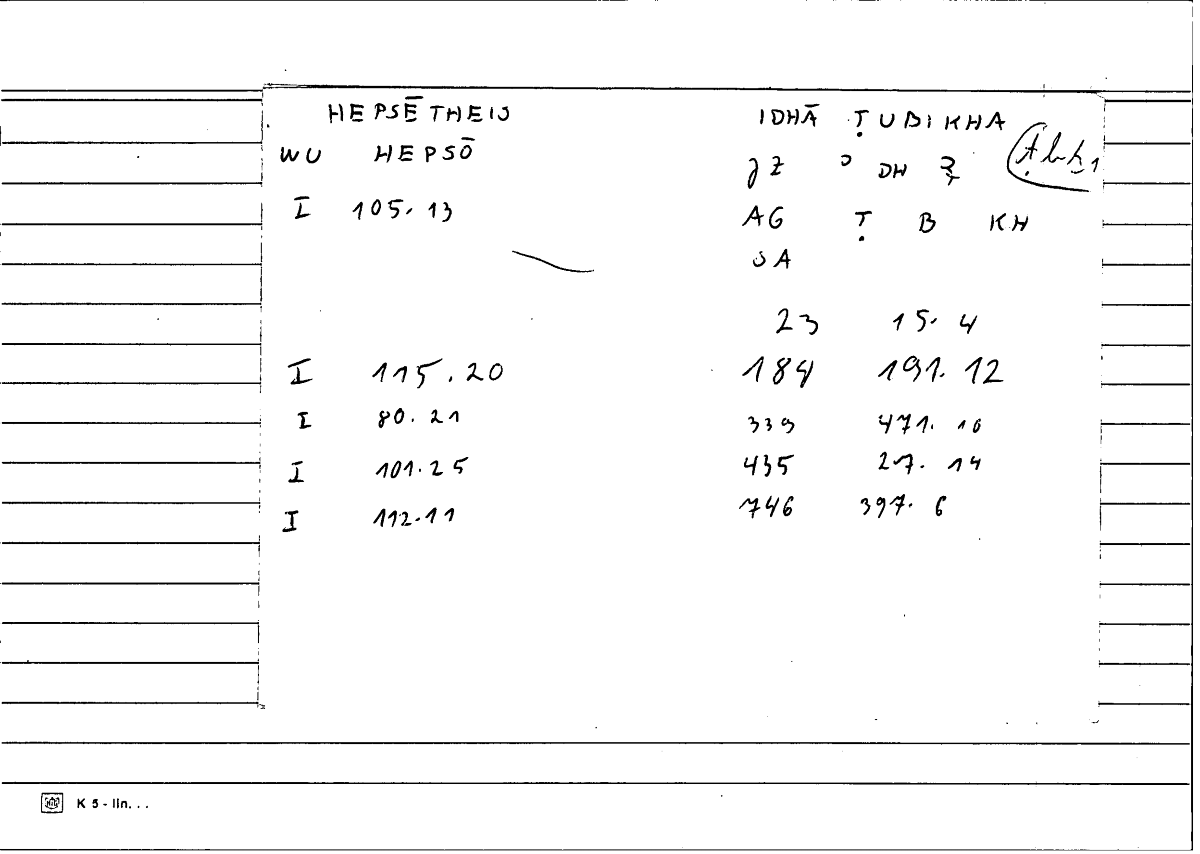 HEPSĒTHEIS IDHĀ ṬUBIKHA
WU HEPSŌ
I 105.13 AG Ṭ B KH
SA
23 15.4
I 115.20 184 191.12
I 80.21 339 471.10
I 101.25 435 27.14
I 112.11 746 397.6
K 5 - lin. . .